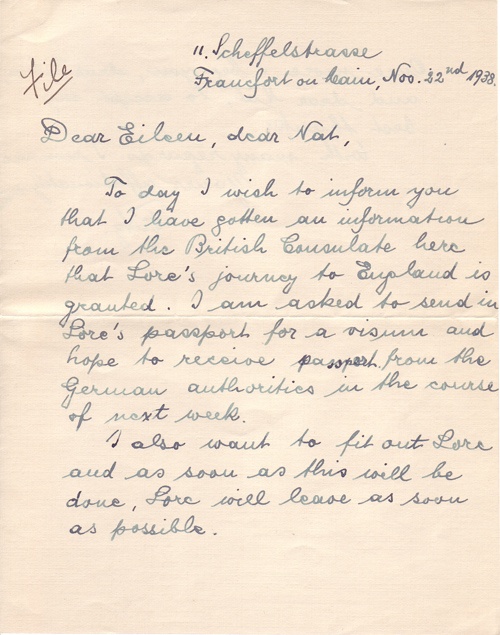 File
11. Scheffelstrasse
Francfort on Main, Nov. 22nd 1938.
Dear Eileen, dear Nat,
To day I wish to inform you
that I have gotten an information
from the British Consulate here
that Lore's journey to England is
granted. I am asked to send in
Lore's passport for a visum and
hope to receive passport from the
German authorities in the course
of next week.
I also want to fit out Lore
and as soon as this will be
done, Lore will leave as soon
as possible.